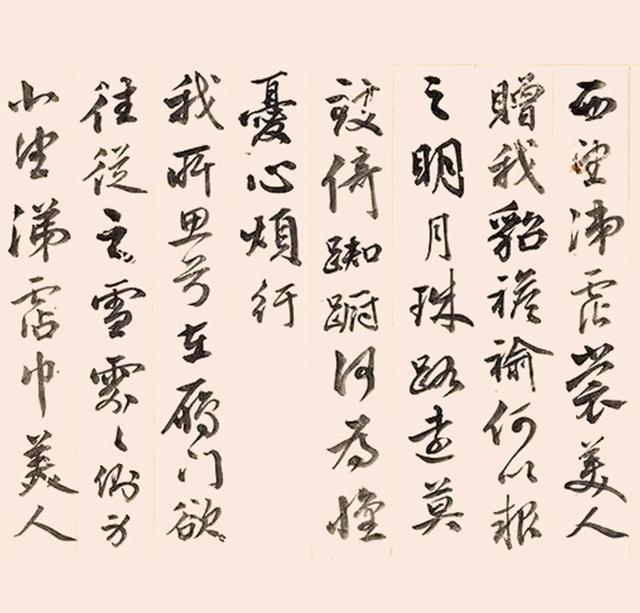 西望涕霑裳美人
贈我貂襜褕何以報
之明月珠路遠莫
致倚踟躕何為懷
憂心煩紆
我所思兮在鴈門欲
往從之雪雰々側身
北望涕霑巾美人